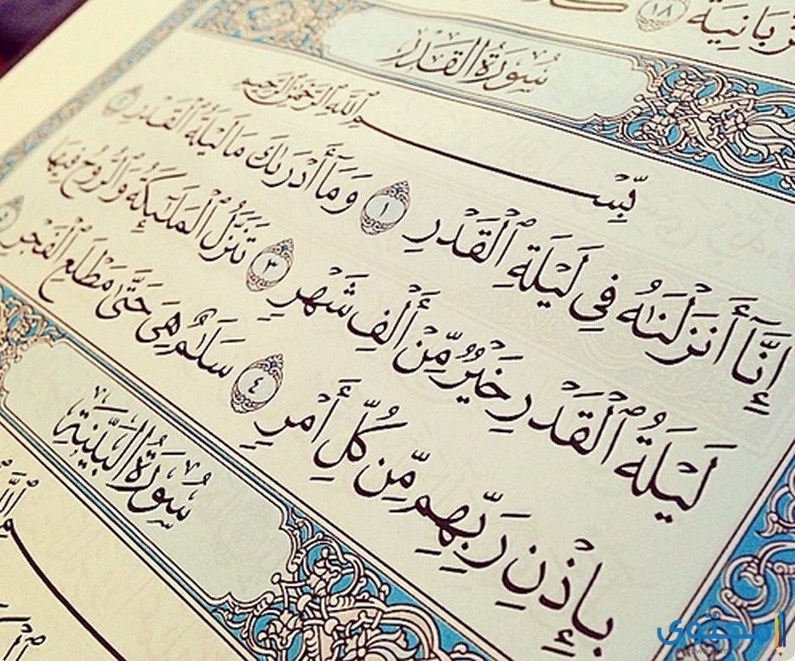 زبانية ١٨
سورة القدر
بِسْمِ اللَّهِ الرَّحْمَٰنِ الرَّحِيمِ
إِنَّا أَنزَلْنَاهُ فِي لَيْلَةِ الْقَدْرِ ١ وَمَا أَدْرَاكَ مَا لَيْلَةُ الْقَدْرِ ٢
لَيْلَةُ الْقَدْرِ خَيْرٌ مِّنْ أَلْفِ شَهْرٍ ٣ تَنَزَّلُ الْمَلَائِكَةُ وَالرُّوحُ فِيهَا
بِإِذْنِ رَبِّهِم مِّن كُلِّ أَمْرٍ ٤ سَلَامٌ هِيَ حَتَّىٰ مَطْلَعِ الْفَجْرِ ٥
سورة البينة
محتوى